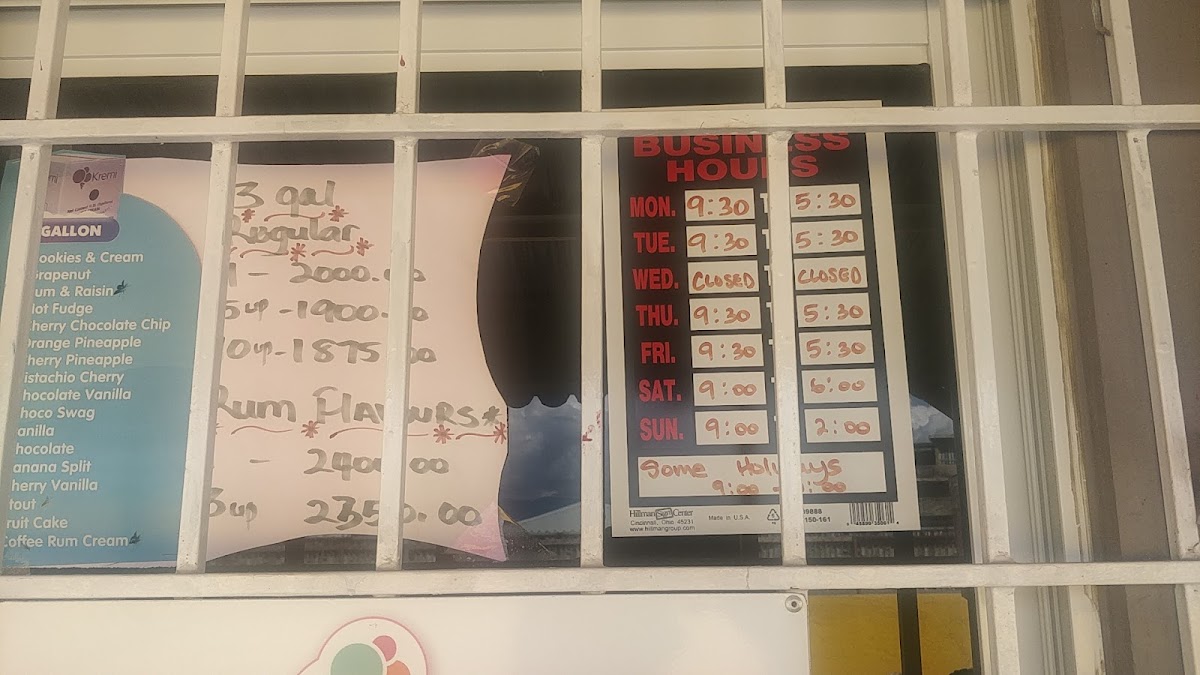 Kremi
GALLON
ookies & Cream
Grapenut
um & Raisin
Hot Fudge
Cherry Chocolate Chip
Orange Pineapple
Cherry Pineapple
istachio Cherry
hocolate Vanilla
hoco Swag
anilla
hocolate
anana Split
herry Vanilla
tout
ruit Cake
Coffee Rum Cream
3 gal
Regular
1 - 2000.00
5 up - 1900.00
10 up - 1875.00
Rum Flavours
- 2400.00
up
BUSINESS
HOURS
MON. 9:30 5:30
TUE. 9:30 5:30
WED. CLOSED CLOSED
THU. 9:30 5:30
FRI. 9:30 5:30
SAT. 9:00 6:00
SUN. 9:00 2:00
Some Holidays
9:00 -
Hillman Sign Center
Cincinnati, Ohio 45231
www.hillmangroup.com
Made in U.S.A.